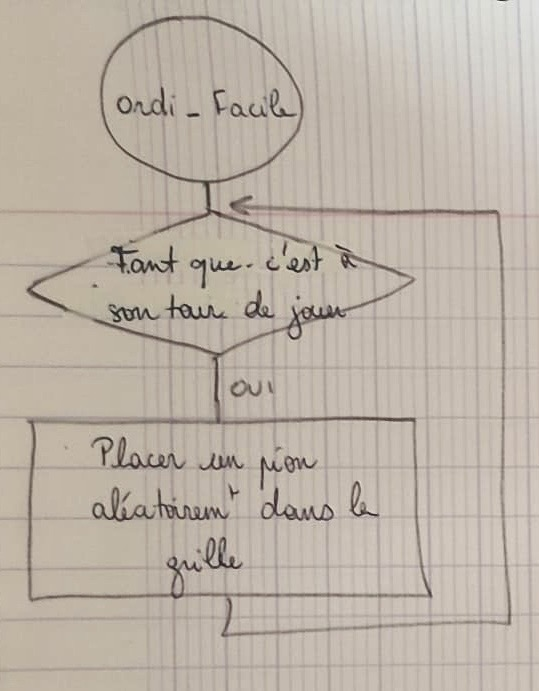 ordi_Facile
Tant que c'est à
son tour de jouer
OUI
Placer un pion
aléatoiremt dans la
grille